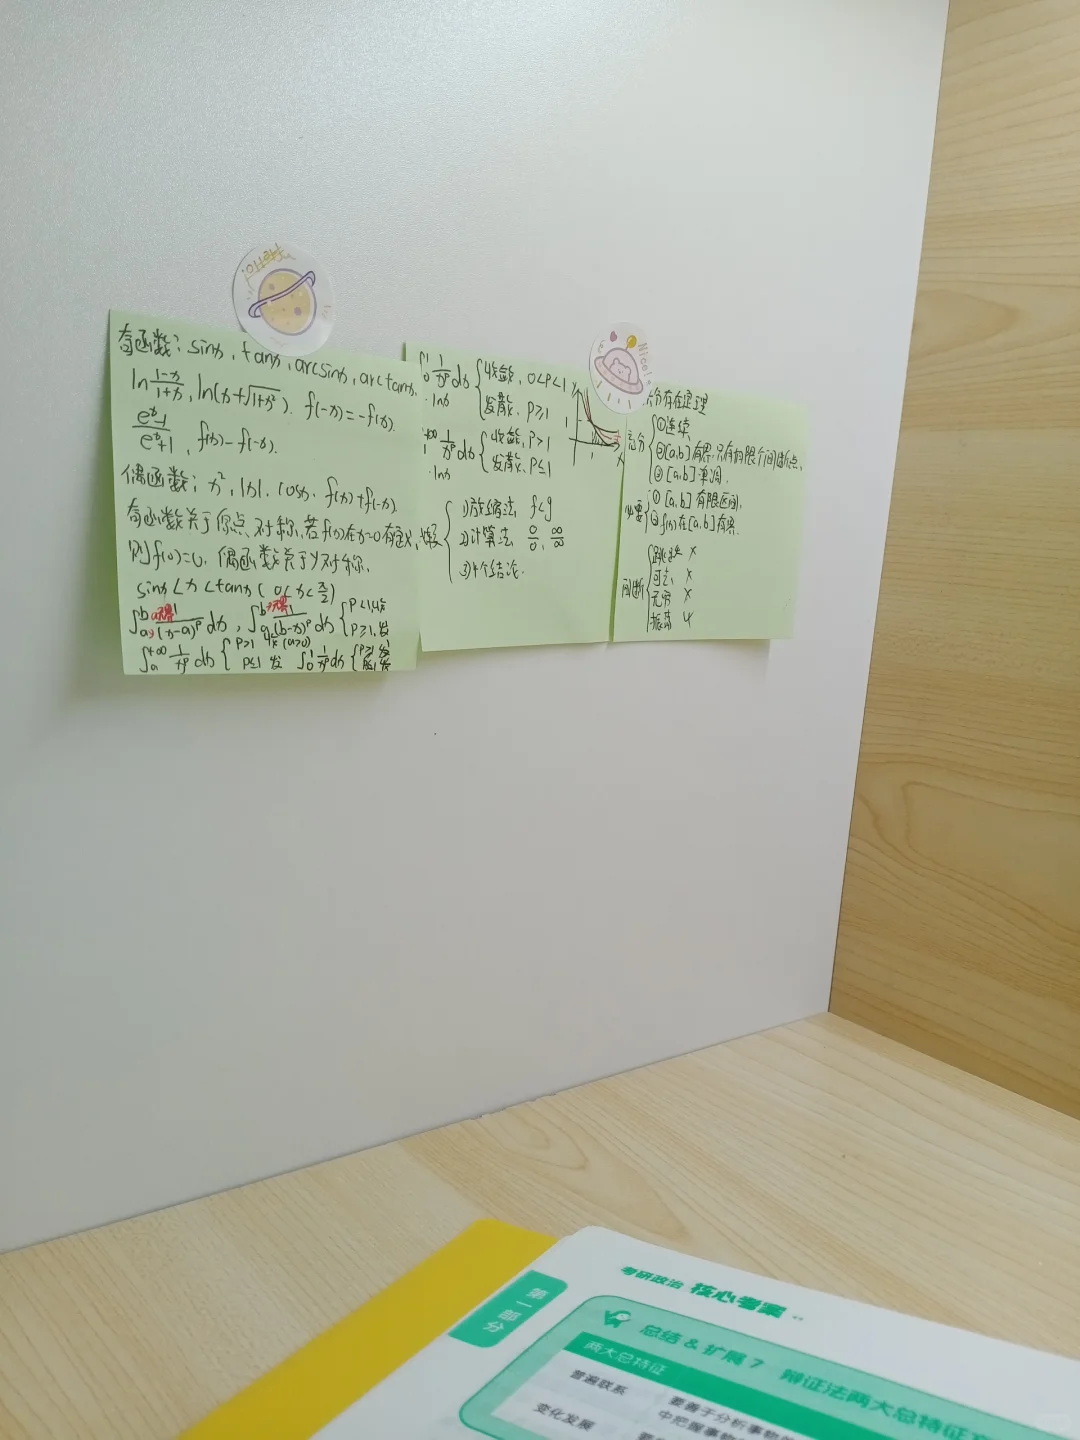 Hello!
奇函数: sinx, tanx, arcsinx, arctanx
ln\frac{1-x}{1+x}, ln(x+\sqrt{1+x²}). f(-x)=-f(x).
\frac{e^x-1}{e^x+1}, f(x)-f(-x).
偶函数: x², |x|, cosx, f(x)+f(-x)
奇函数关于原点对称,若f(x)在x=0有定义,
则f(0)=0. 偶函数关于y对称.
sinx<x<tanx(0<x<\frac{π}{2})
∫_a^b \frac{1}{(x-a)^p}dx, ∫_a^b \frac{1}{(b-x)^p}dx {P<1,收 P≥1,发
∫_a^{+∞} \frac{1}{x^p}dx {P>1 收(a>0) P≤1 发 ∫_0^1 \frac{1}{x^p}dx {P≥1 发
∫_0^1 \frac{1}{x^p}dx {收敛, 0<P<1
发散, P≥1
·lnx
∫_1^{+∞} \frac{1}{x^p}dx {收敛, P>1
发散, P≤1
·lnx
1)放缩法, f<g
2)计算法, \frac{0}{0}, \frac{∞}{∞}
3)4个结论.
y
1
1
x
Nicole
分存在定理
充分 ①连续
②[a,b]有界,只有有限个间断点.
③[a,b]单调.
必要 ①[a,b]有限区间.
②f(x)在[a,b]有界.
间断 跳跃 x
可去 x
无穷 x
振荡 ψ
考研政治 核心考案
第一部分
总结&扩展7 辩证法两大总特征
两大总特征
普遍联系 要善于分析事物的
中把握事物
变化发展